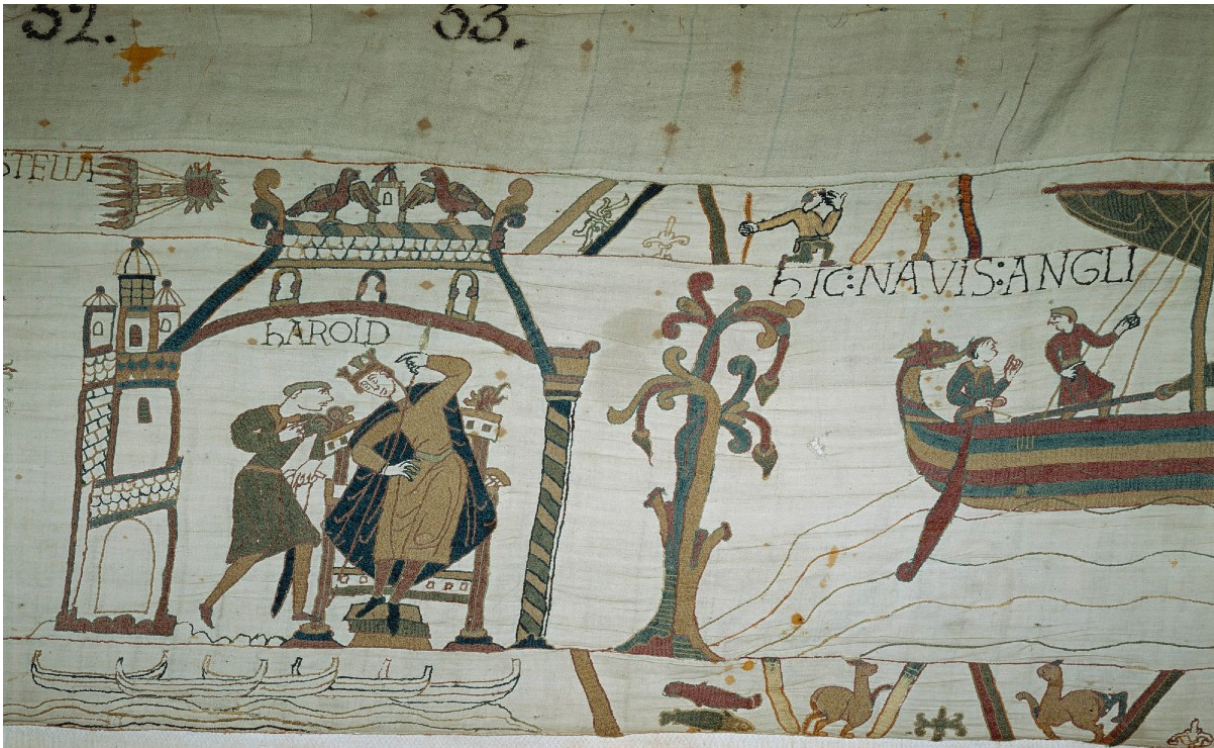 32. 33.
STELLA
HAROLD
HIC:NAVIS:ANGLI